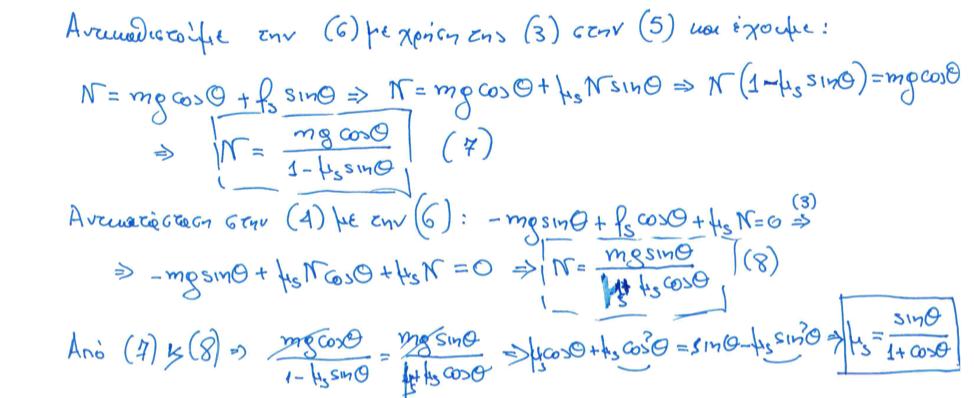 Αντικαθιστούμε την (6) με χρήση της (3) στην (5) και έχουμε:
N = mg cosθ + f_s sinθ ⇒ N = mg cosθ + μ_s N sinθ ⇒ N (1-μ_s sinθ) = mg cosθ
⇒ N = \frac{mg cosθ}{1 - μ_s sinθ} (7)
Αντικατάσταση στην (4) με την (6): -mg sinθ + f_s cosθ + μ_s N = 0 \overset{(3)}{⇒}
⇒ -mg sinθ + μ_s N cosθ + μ_s N = 0 ⇒ N = \frac{mg sinθ}{μ_s + μ_s cosθ} (8)
Από (7) & (8) ⇒ \frac{mg cosθ}{1 - μ_s sinθ} = \frac{mg sinθ}{μ_s + μ_s cosθ} ⇒ μ_s cosθ + μ_s cos²θ = sinθ - μ_s sin²θ ⇒ μ_s = \frac{sinθ}{1 + cosθ}